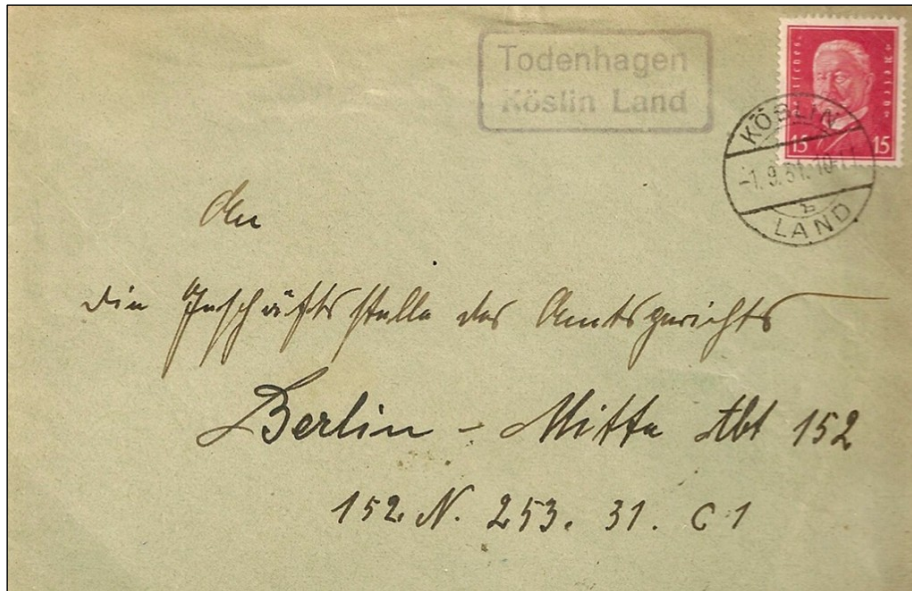 Todenhagen
Köslin Land
Deutsches Reich
15 15
KÖSLIN
-1.9.31.10-11
b
LAND
An
die Geschäftsstelle des Amtsgerichts
Berlin - Mitte Abt 152
152. N. 253. 31. C 1